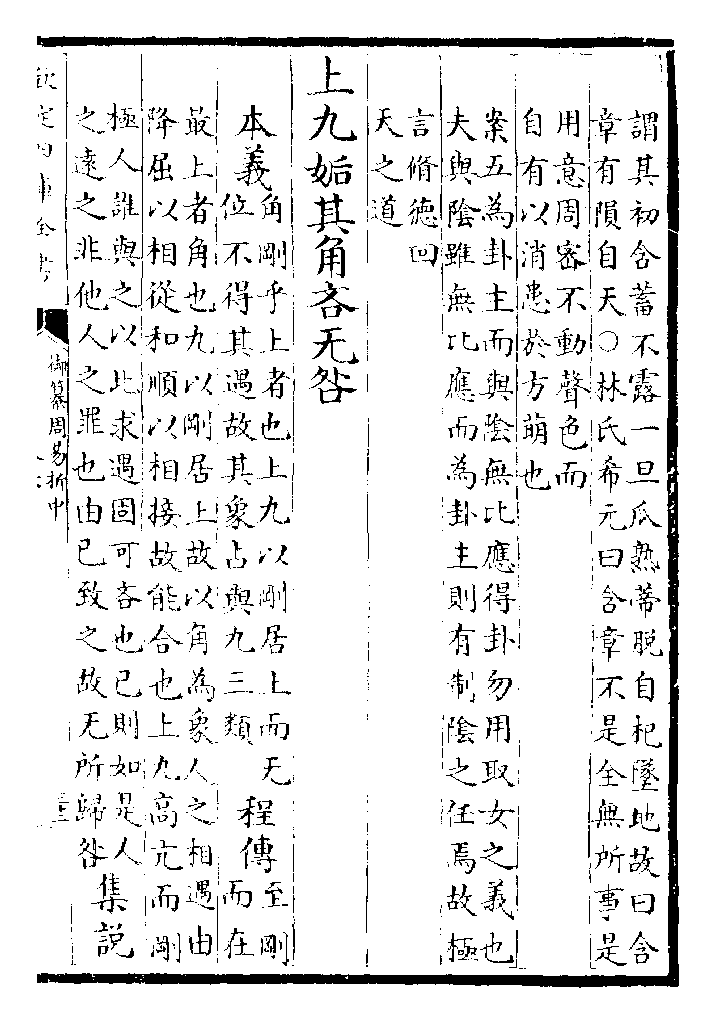 謂其初含蓄不露一旦瓜熟蒂脫自杞墜地故曰含
章有隕自天○林氏希元曰含章不是全無所事是
用意周審不動聲色而
自有以消患於方萌也
案五為卦主而與陰無比應得卦勿用取女之義也
夫與陰雖無比應而為卦主則有制陰之任焉故極
言脩德回
天之道
上九姤其角吝无咎
本義
角剛乎上者也上九以剛居上而无
位不得其遇故其象占與九三類
程傳
至剛
而在
最上者角也九以剛居上故以角為象人之相遇由
降屈以相從和順以相接故能合也上九高亢而剛
極人誰與之以此求遇固可吝也已則如是人
之遠之非他人之罪也由已致之故无所歸咎
集說
欽定四庫全書
御纂周易折中